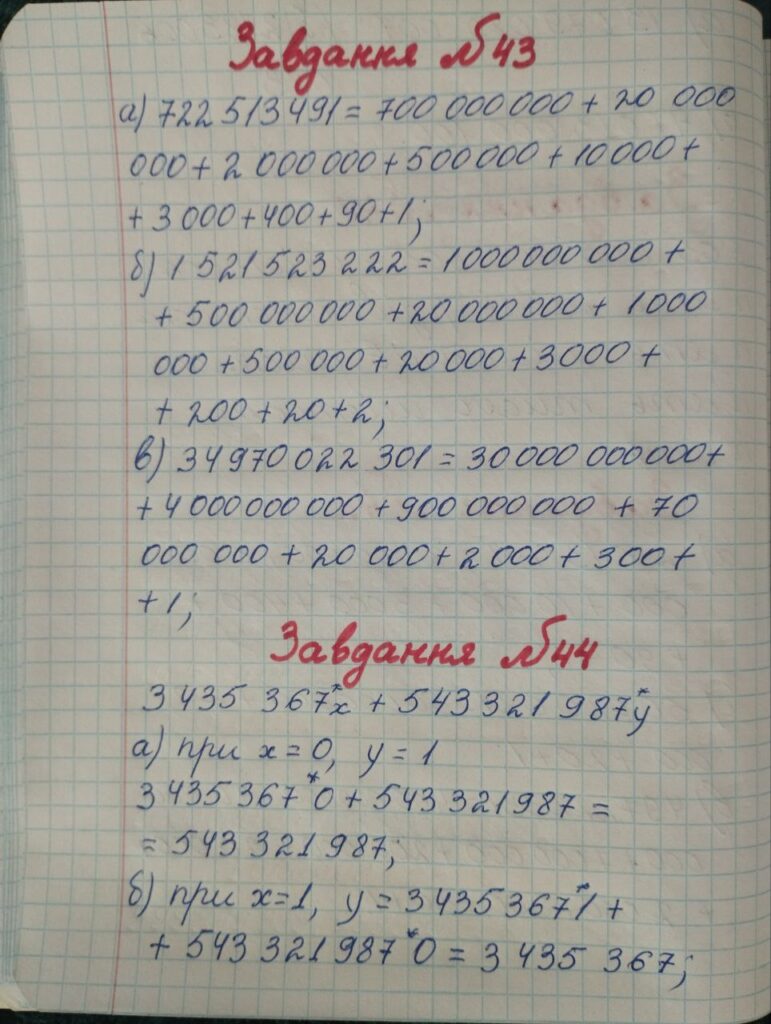 Завдання №43
а) 722 513 491 = 700 000 000 + 20 000
000 + 2 000 000 + 500 000 + 10 000 +
+ 3 000 + 400 + 90 + 1;
б) 1 521 523 222 = 1000 000 000 +
+ 500 000 000 + 20 000 000 + 1000
000 + 500 000 + 20 000 + 3000 +
+ 200 + 20 + 2;
в) 34 970 022 301 = 30 000 000 000 +
+ 4 000 000 000 + 900 000 000 + 70
000 000 + 20 000 + 2 000 + 300 +
+ 1;
Завдання №44
3 435 367*x + 543 321 987*y
а) при x = 0, y = 1
3 435 367*0 + 543 321 987 =
= 543 321 987;
б) при x = 1, y = 3 435 367*1 +
+ 543 321 987*0 = 3 435 367;